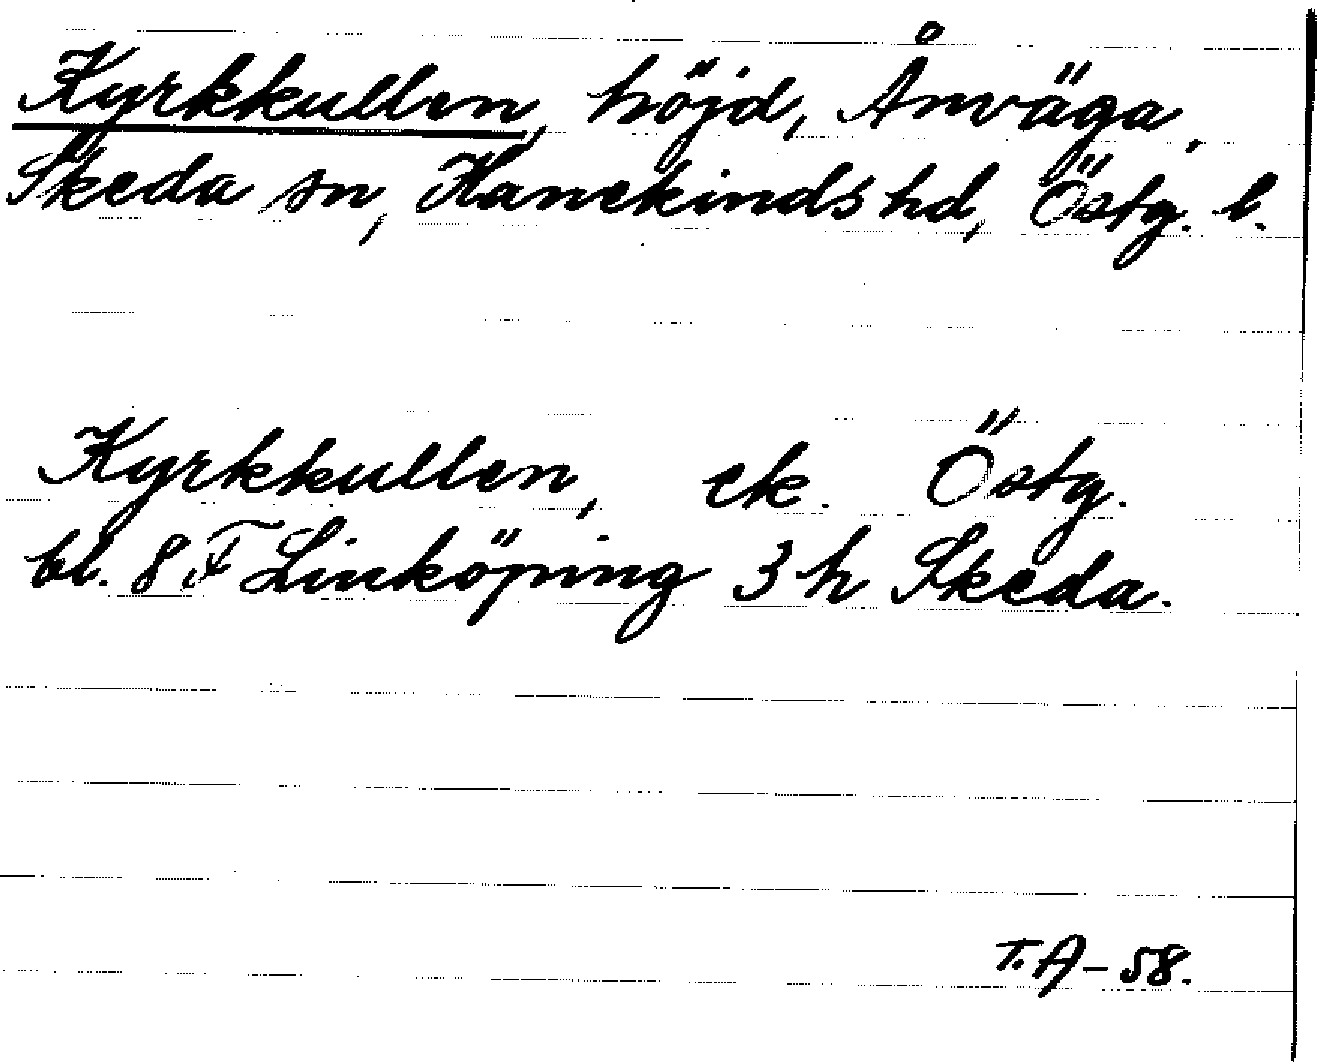 Kyrkkullen, höjd, Ånväga,
Skeda sn, Hanekinds hd, Östg. l.
Kyrkkullen, ek. Östg.
bl. 8 F Linköping 3 h Skeda.
T.A-58.